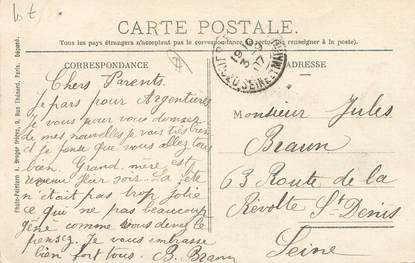 lot.
CARTE POSTALE.
Tous les pays étrangers n'acceptent pas la correspondance au recto (se renseigner à la poste).
CORRESPONDANCE
ADRESSE
Chers Parents.
Je pars pour Argentières
Je vous pour vous donner
de mes nouvelles je vais très bien
et je pense que vous allez tous
bien. Grand mère est
venue Hier soir. La fête
n'était pas trop jolie
ce qui ne pas beaucoup
gêné comme vous devez le
penser. Je vous embrasse
bien fort tous. B. Braun
Monsieur Jules
Braun
63 Route de la
Révolte St Denis
Seine
SEINE ET MARNE